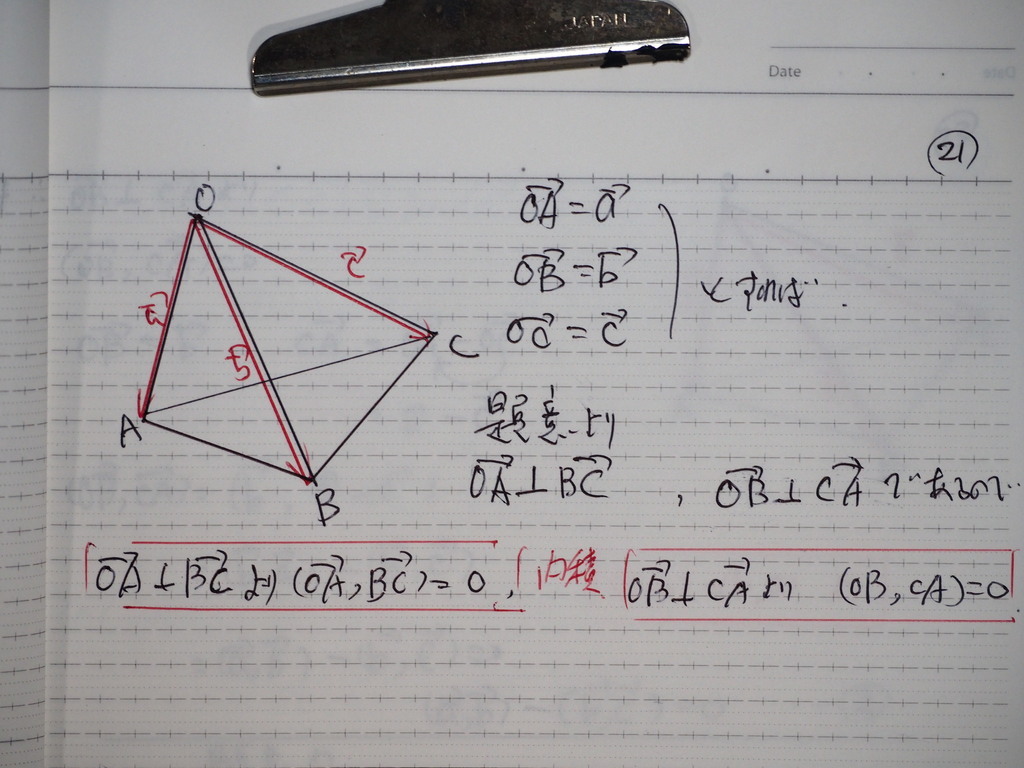 JAPAN
Date
21
O
A
B
C
a⃗
b⃗
c⃗
OA⃗ = a⃗
OB⃗ = b⃗
OC⃗ = c⃗
とすれば.
題意より
OA⃗⊥BC⃗ , OB⃗⊥CA⃗ であるので
OA⃗⊥BC⃗ より (OA⃗, BC⃗) = 0, 内積 OB⃗⊥CA⃗ より (OB, CA)=0